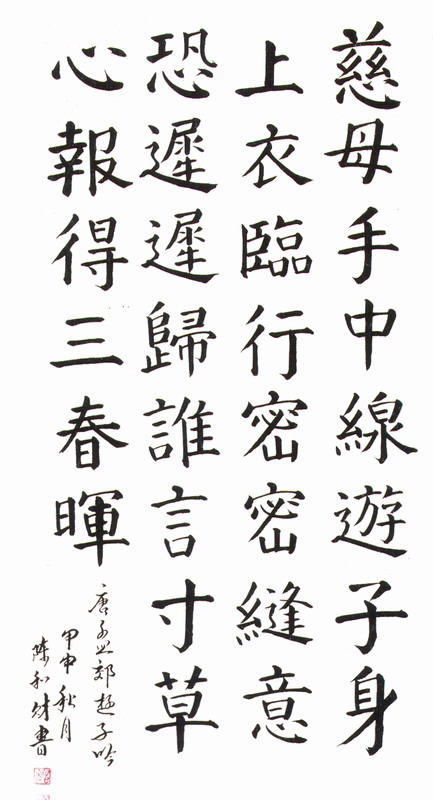 慈母手中線遊子身
上衣臨行密密縫意
恐遲遲歸誰言寸草
心報得三春暉
唐孟郊遊子吟
甲申秋月
陳和財書